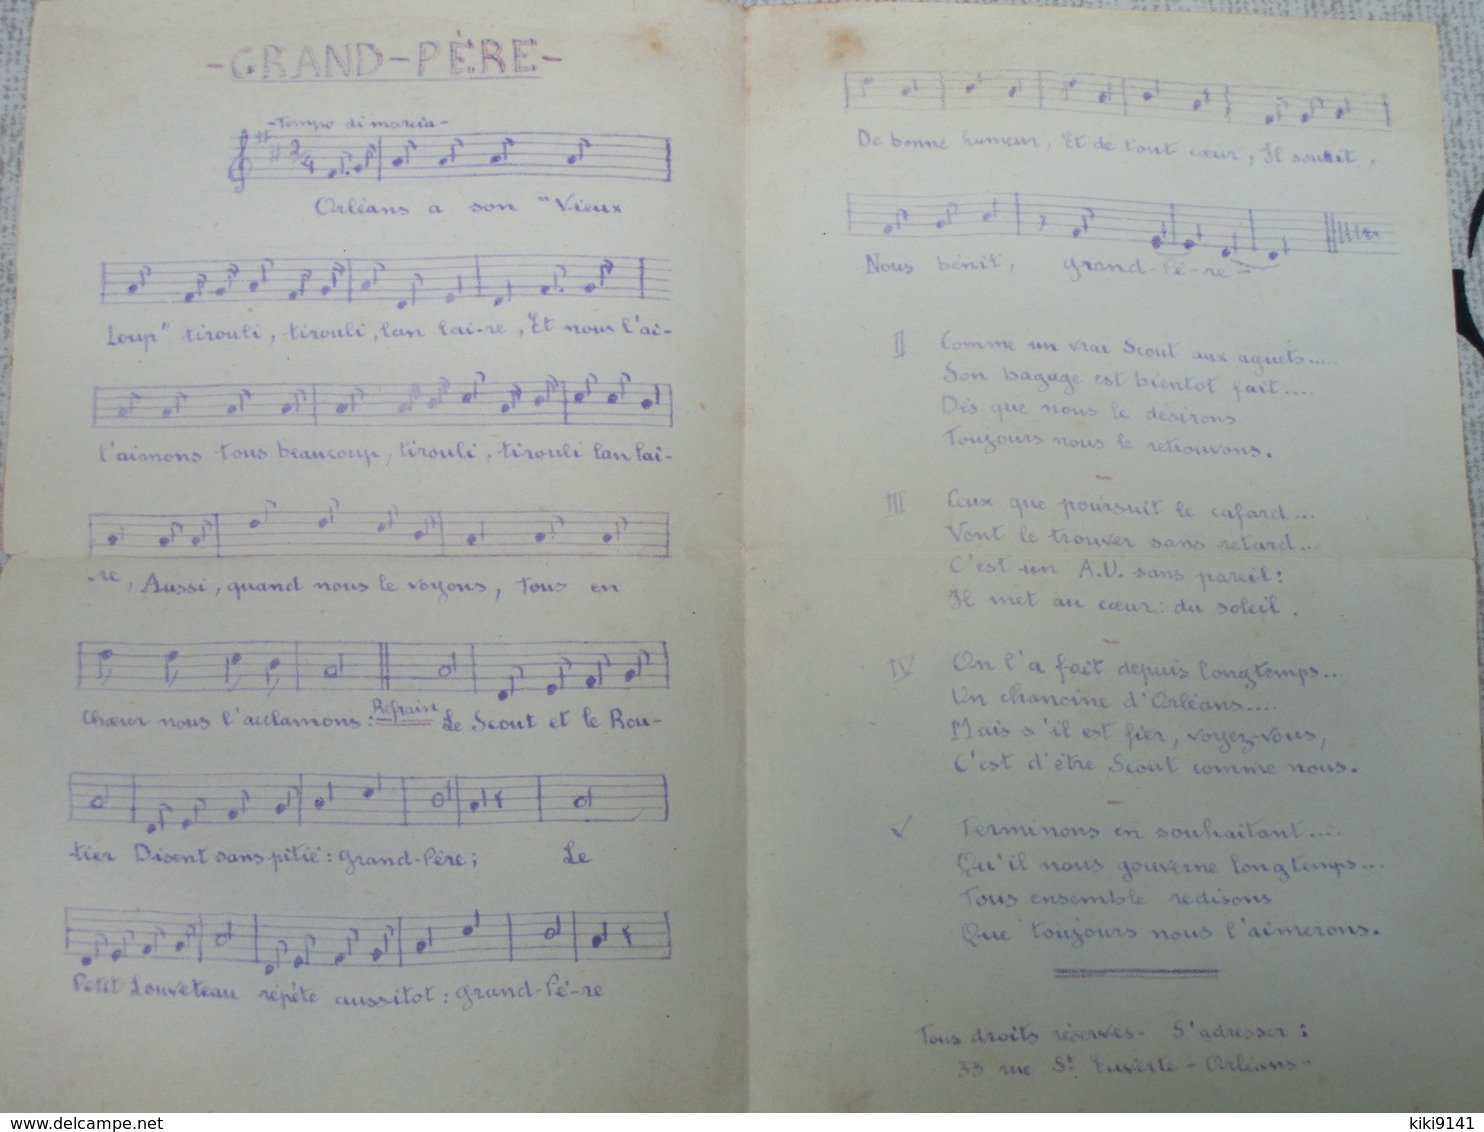 -GRAND-PÈRE-
-Tempo di marcia-
2/4
Orléans a son "Vieux
Loup" tirouli, tirouli, lan lai-re, Et nous l'ai-
l'aimons tous beaucoup, tirouli, tirouli lan lai-
-re, Aussi, quand nous le voyons, Tous en
chœur nous l'acclamons: Refrain Le Scout et le Rou-
-tier Disent sans pitié: Grand-Père; Le
Petit Louveteau répète aussitot: Grand-Pè-re
De bonne humeur, Et de tout cœur, Il sourit,
Nous bénit, Grand-Pè-re-
II Comme un vrai Scout aux aguets.....
Son bagage est bientot fait....
Dès que nous le désirons
Toujours nous le retrouvons.
III Ceux que poursuit le cafard...
Vont le trouver sans retard...
C'est un A.V. sans pareil:
Il met au cœur: du soleil.
IV On l'a fait depuis longtemps..
Un chanoine d'Orléans....
Mais s'il est fier, voyez-vous,
C'est d'être Scout comme nous.
V Terminons en souhaitant....
Qu'il nous gouverne longtemps...
Tous ensemble redisons
Que toujours nous l'aimerons.
Tous droits réservés- S'adresser:
35 rue St Euverte - Orléans-
delcampe.net
kiki9141